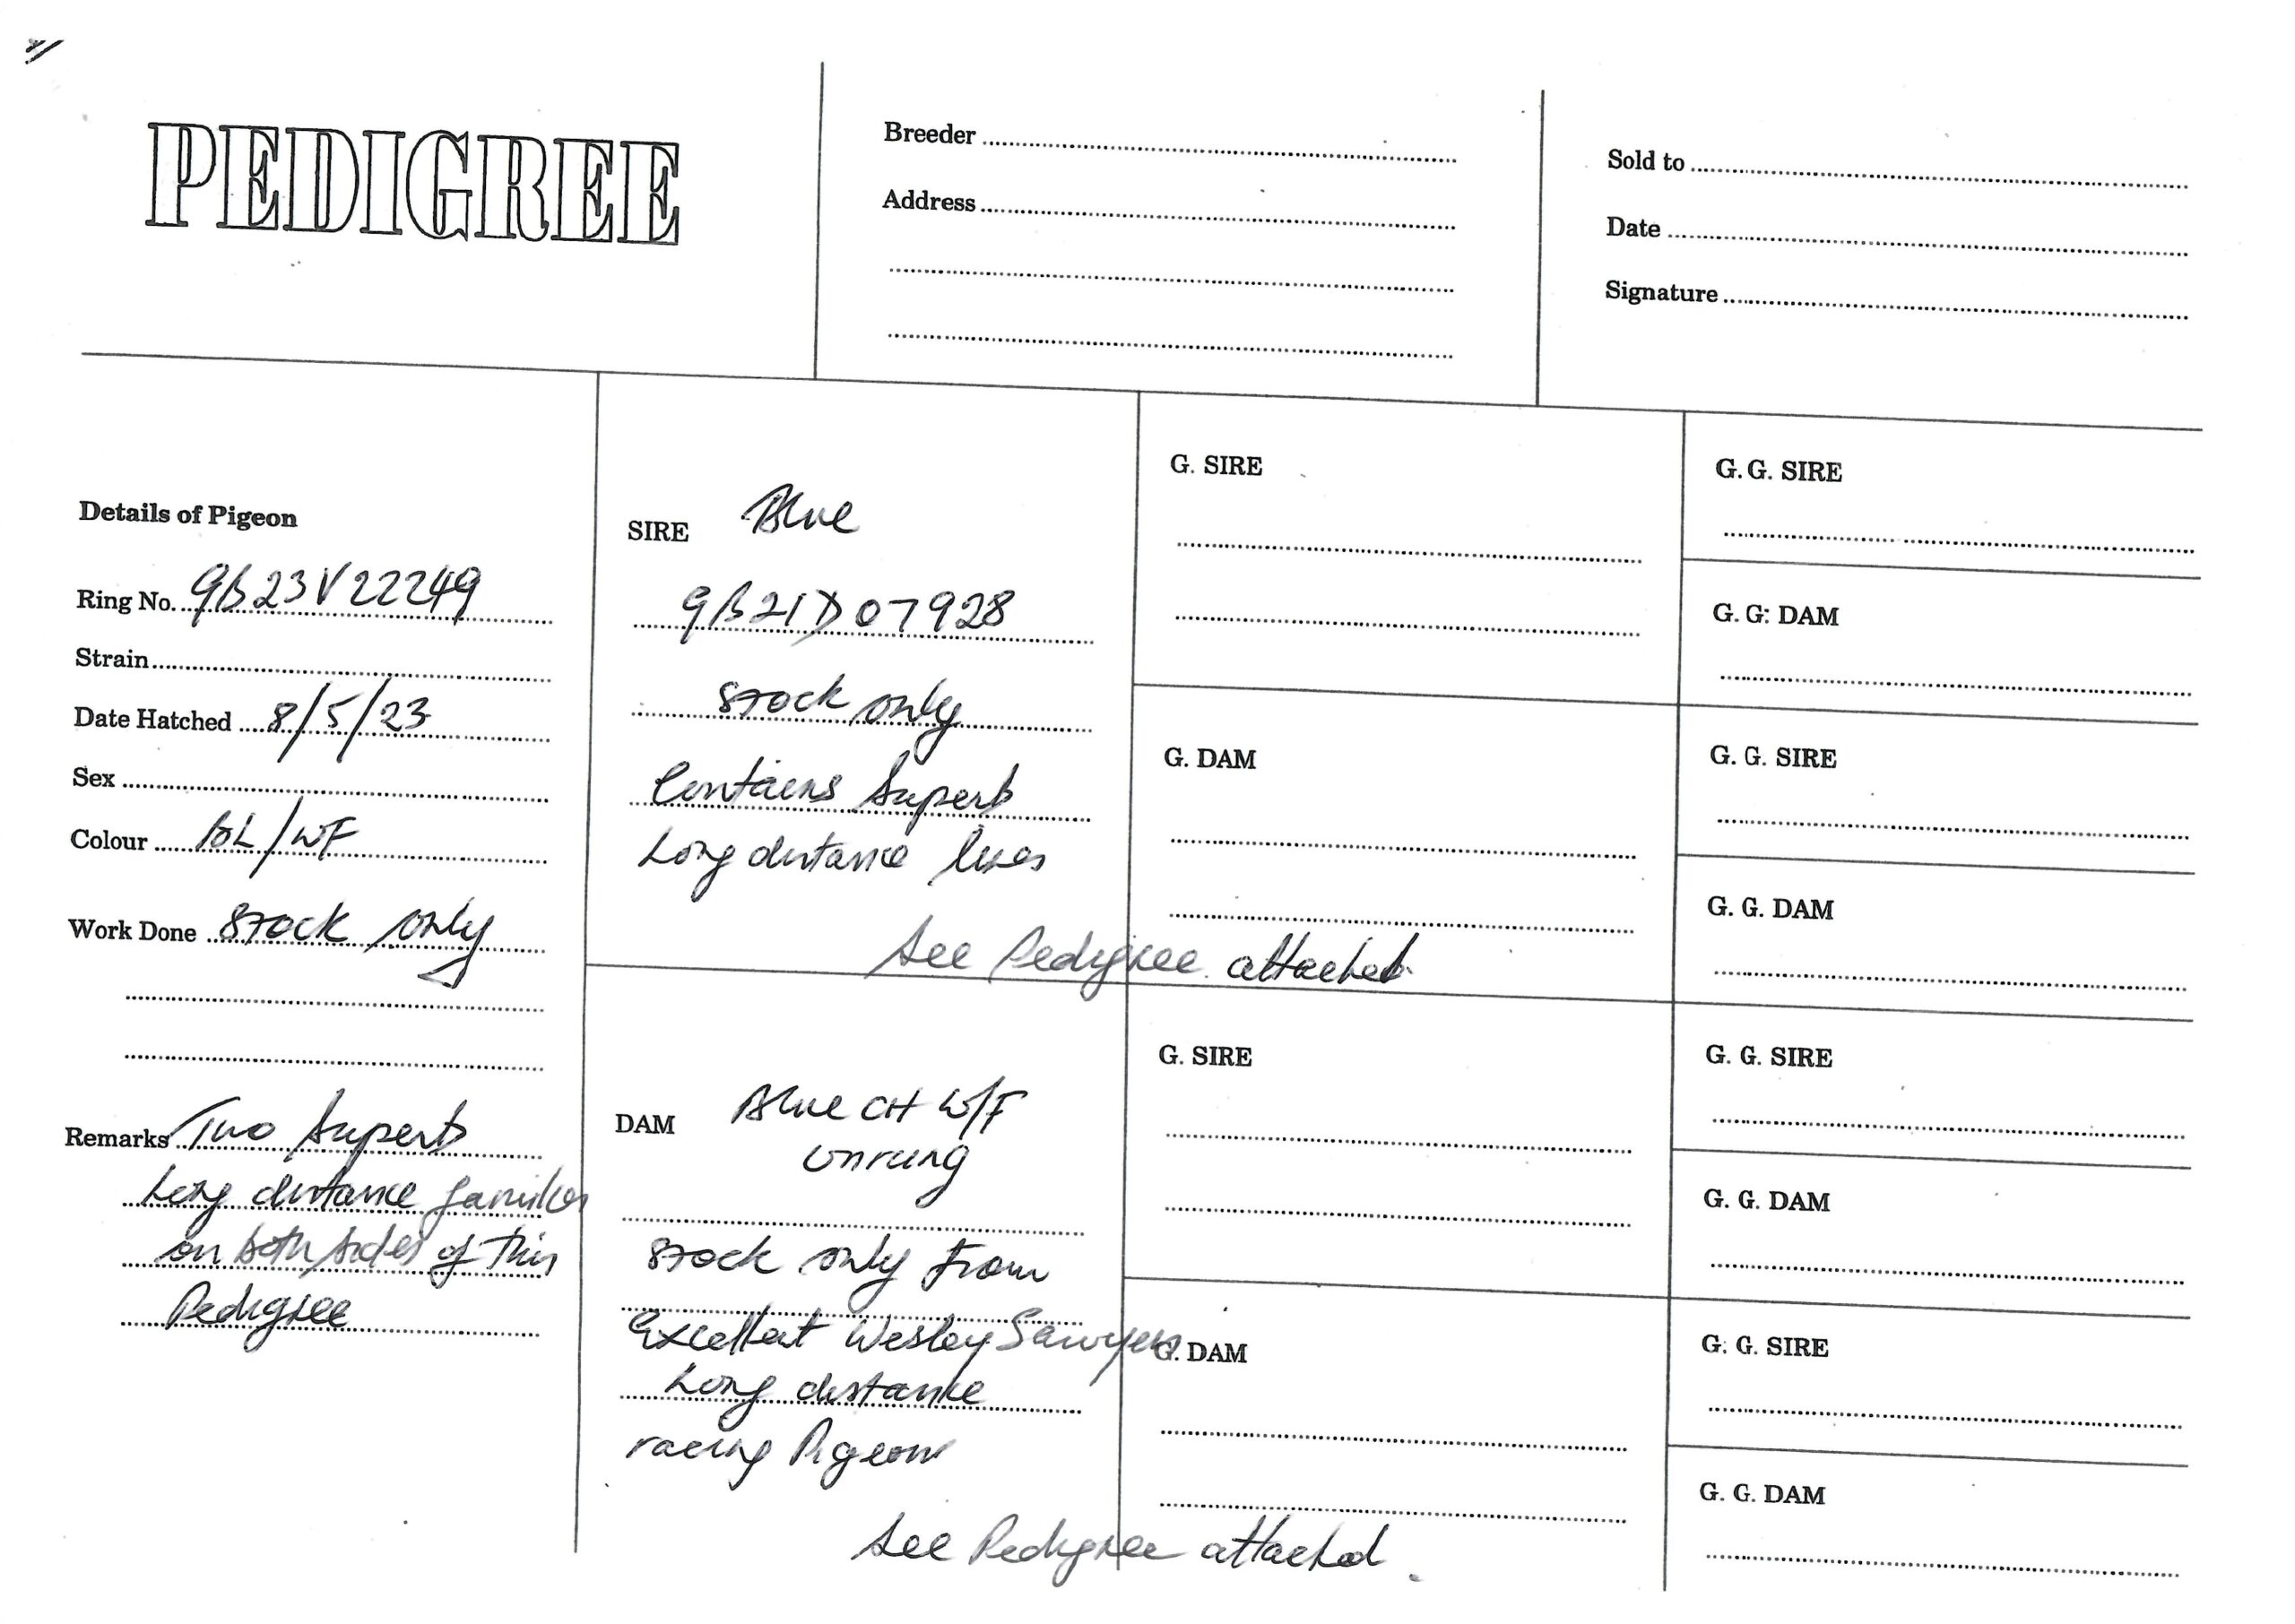 PEDIGREE
Breeder
Address
Sold to
Date
Signature
Details of Pigeon
Ring No. GB23V22249
Strain
Date Hatched 8/5/23
Sex
Colour BL/WF
Work Done Stock only
Remarks Two Superb
Long distance families
on both sides of this
Pedigree
SIRE Blue
GB21D07928
Stock only
Contains Superb
Long distance lines
See Pedigree attached
DAM Blue CH W/F
Unrung
Stock only from
Excellent Wesley Sawyers
Long distance
racing Pigeons
See Pedigree attached.
G. SIRE
G. DAM
G. SIRE
G. DAM
G. G. SIRE
G. G. DAM
G. G. SIRE
G. G. DAM
G. G. SIRE
G. G. DAM
G. G. SIRE
G. G. DAM